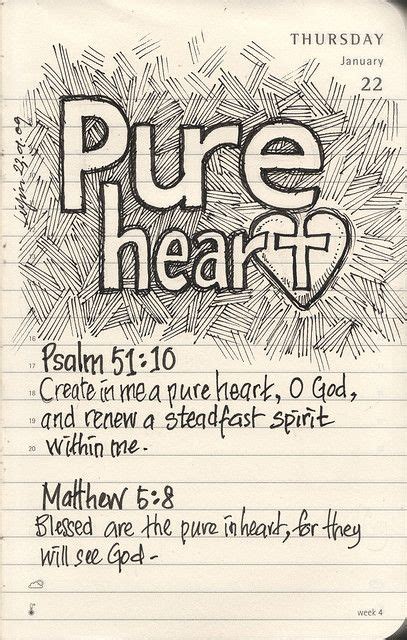 THURSDAY
January
22
Pure
heart
16
17 Psalm 51:10
18 Create in me a pure heart, O God,
19 and renew a steadfast spirit
20 within me.
Matthew 5:8
Blessed are the pure in heart, for they
will see God -
week 4